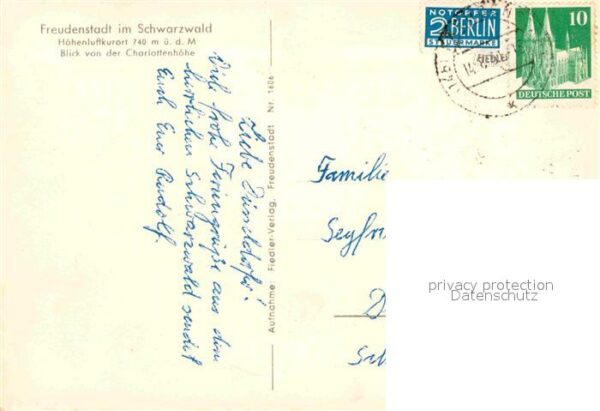 Freudenstadt im Schwarzwald
Höhenluftkurort 740 m ü. d. M
Blick von der Charlottenhöhe
NOTOPFER
2 BERLIN
STEUERMARKE
10
DEUTSCHE POST
Liebe Düsseldorfer!
Viele frohe Feriengrüße aus dem
herrlichen Schwarzwald sendet
Euch Euer Rudolf.
Aufnahme: Fiedler-Verlag, Freudenstadt Nr. 1606
Familie
Seyfr
D
Sch
privacy protection
Datenschutz